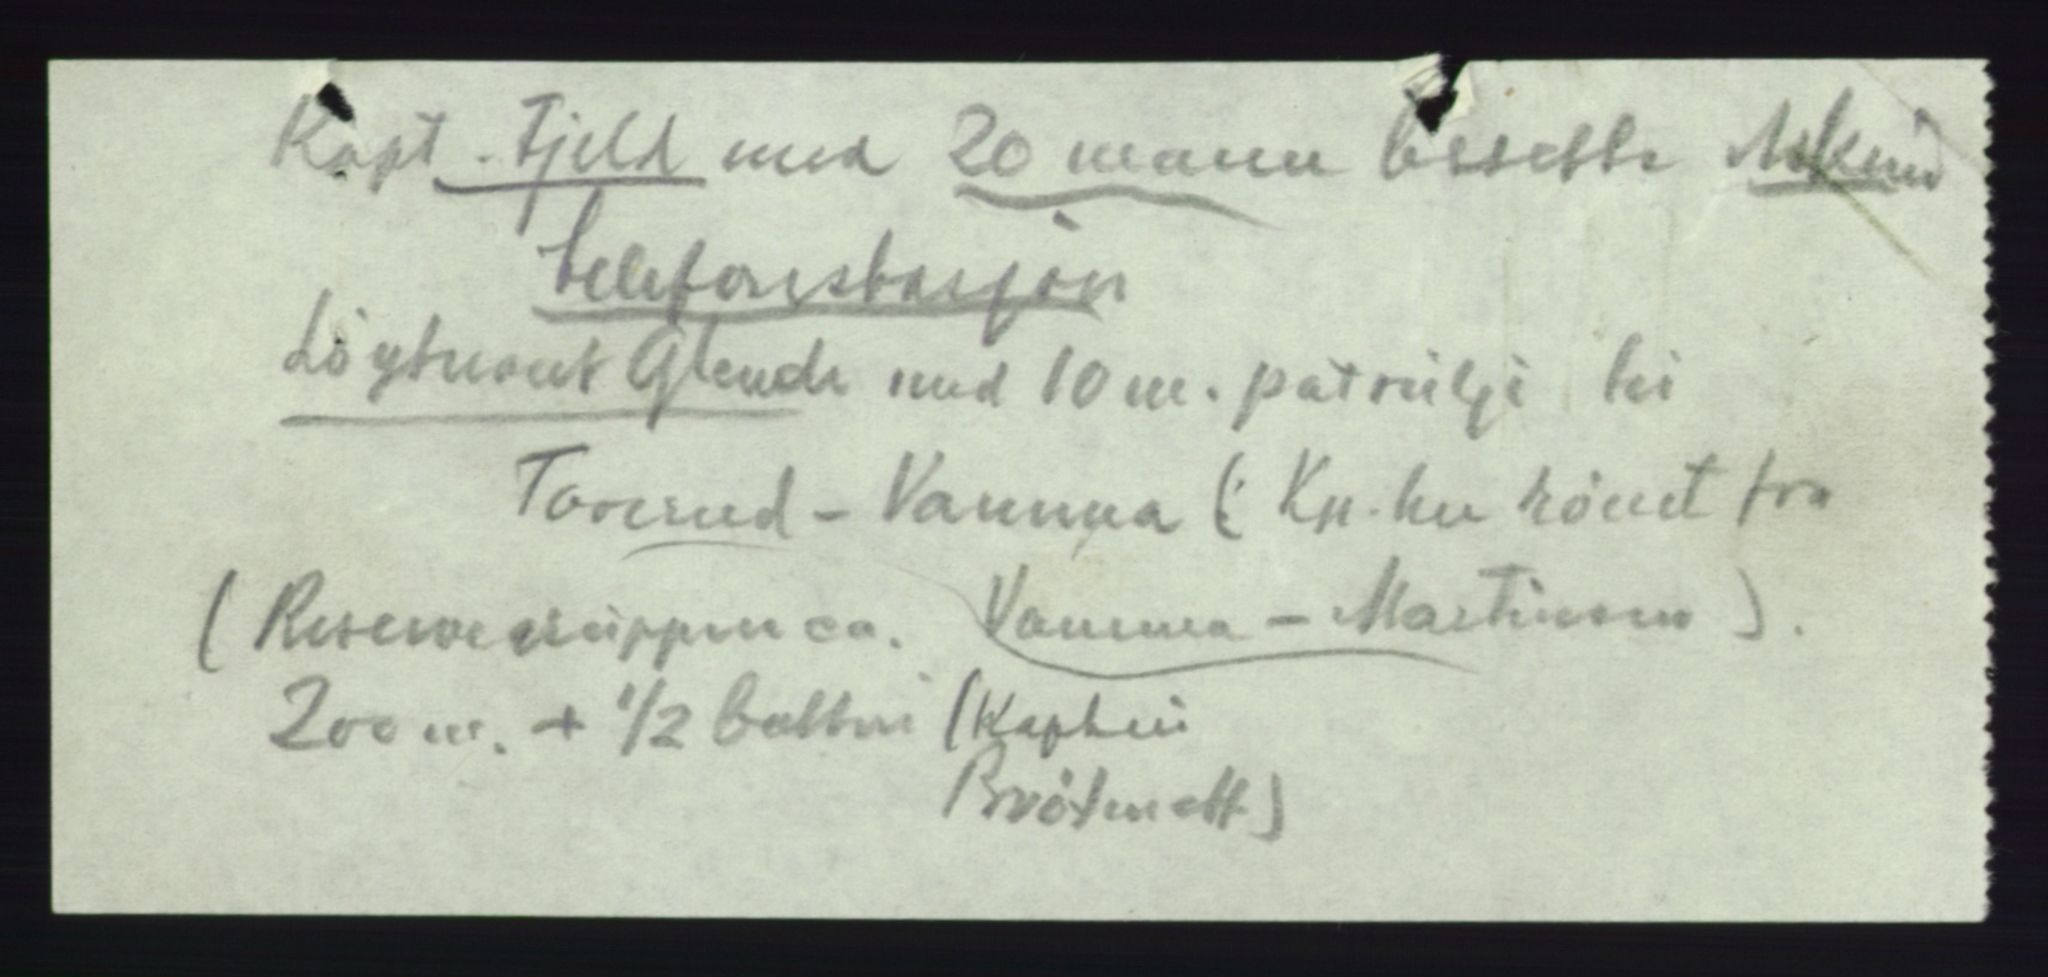 Kapt. Fjeld med 20 mann besette Askim
telefonstasjon
Löytnant Glende med 10 m. patrulje til
Toverud - Vamma (: Kp. har römt fra
(Reservegruppen ca. Vamma - Martinsen).
200 m. + 1/2 batteri (Kaptein